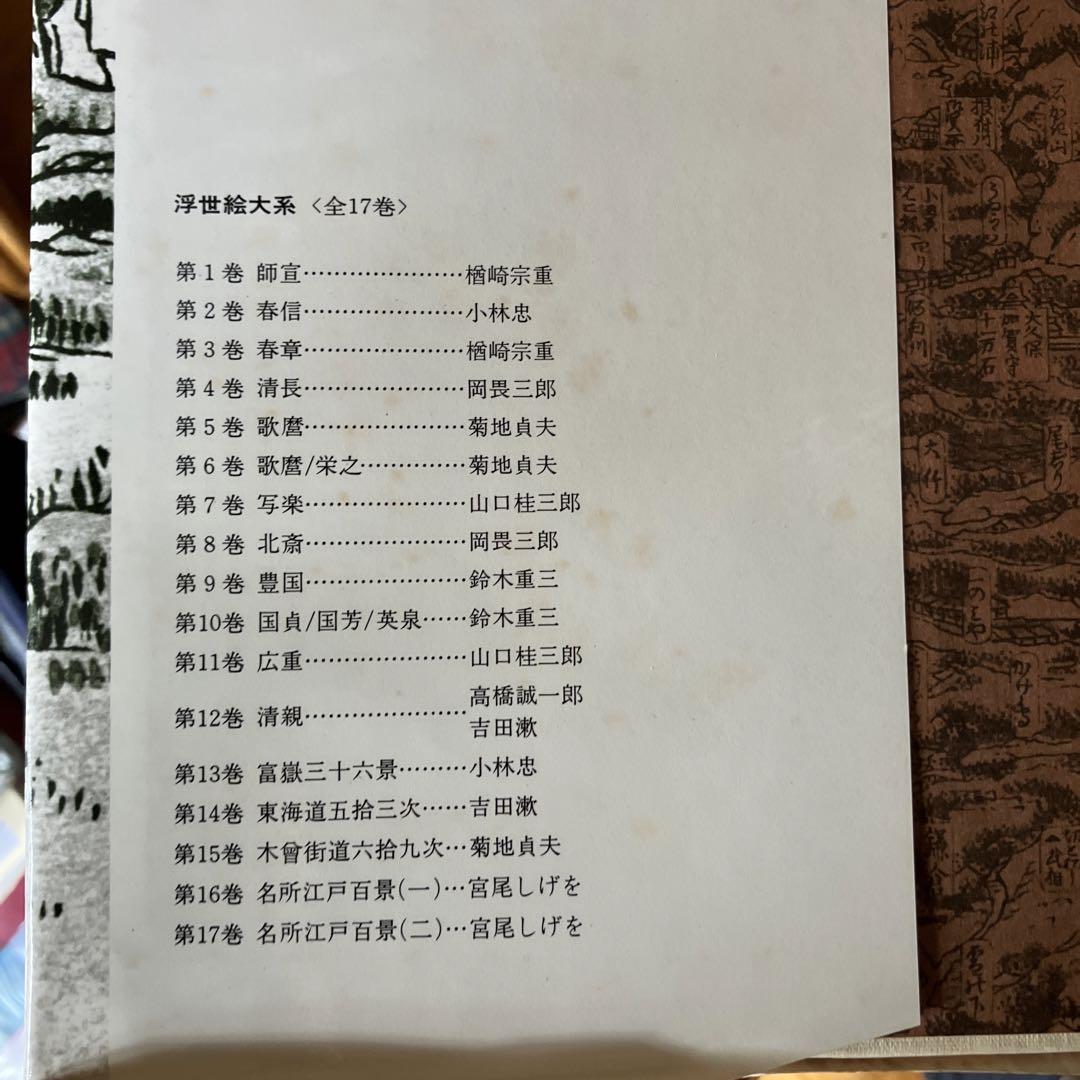 浮世絵大系〈全17巻〉
第1巻 師宣…………………楢崎宗重
第2巻 春信…………………小林忠
第3巻 春章…………………楢崎宗重
第4巻 清長…………………岡畏三郎
第5巻 歌麿…………………菊地貞夫
第6巻 歌麿/栄之…………菊地貞夫
第7巻 写楽…………………山口桂三郎
第8巻 北斎…………………岡畏三郎
第9巻 豊国…………………鈴木重三
第10巻 国貞/国芳/英泉……鈴木重三
第11巻 広重…………………山口桂三郎
第12巻 清親…………………高橋誠一郎
吉田漱
第13巻 富嶽三十六景………小林忠
第14巻 東海道五拾三次……吉田漱
第15巻 木曾街道六拾九次…菊地貞夫
第16巻 名所江戸百景(一)…宮尾しげを
第17巻 名所江戸百景(二)…宮尾しげを
大久保
加賀守
十万石